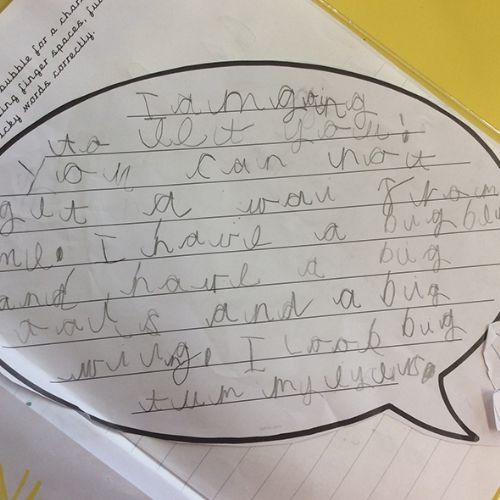 bubble for a char
ing finger spaces, ful
icky words correctly.
I am going
to eet you!
You can not
get a wai From
me. I have a big
and have a big
and a big
wing. I look big
my